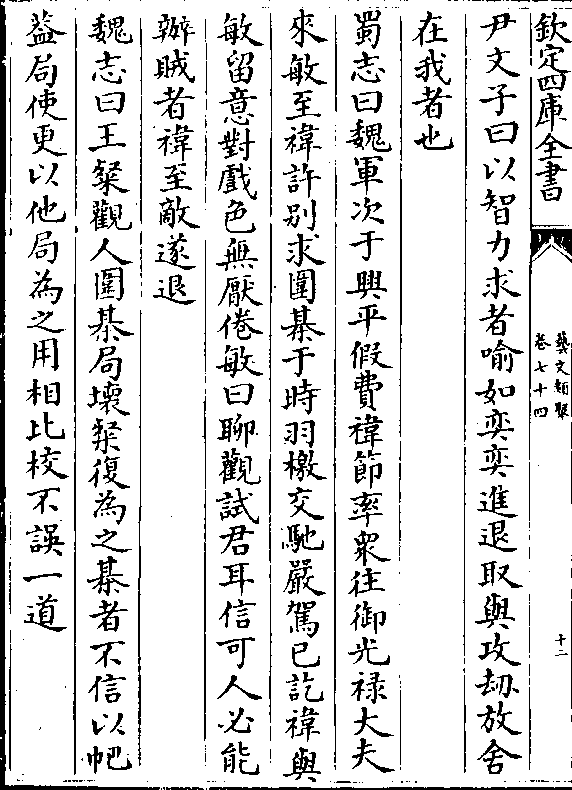 欽定四庫全書
藝文類聚
卷七十四
十二
尹文子曰以智力求者喻如奕奕進退取與攻刼放舍
在我者也
蜀志曰魏軍次于興平假費禕節率衆往御光禄大夫
來敏至禕許别求圍棊于時羽檄交馳嚴駕已訖禕與
敏留意對戲色無厭倦敏曰聊觀試君耳信可人必能
辦賊者禕至敵遂退
魏志曰王粲觀人圍棊局壊粲復為之棊者不信以帊
葢局使更以他局為之用相比校不誤一道